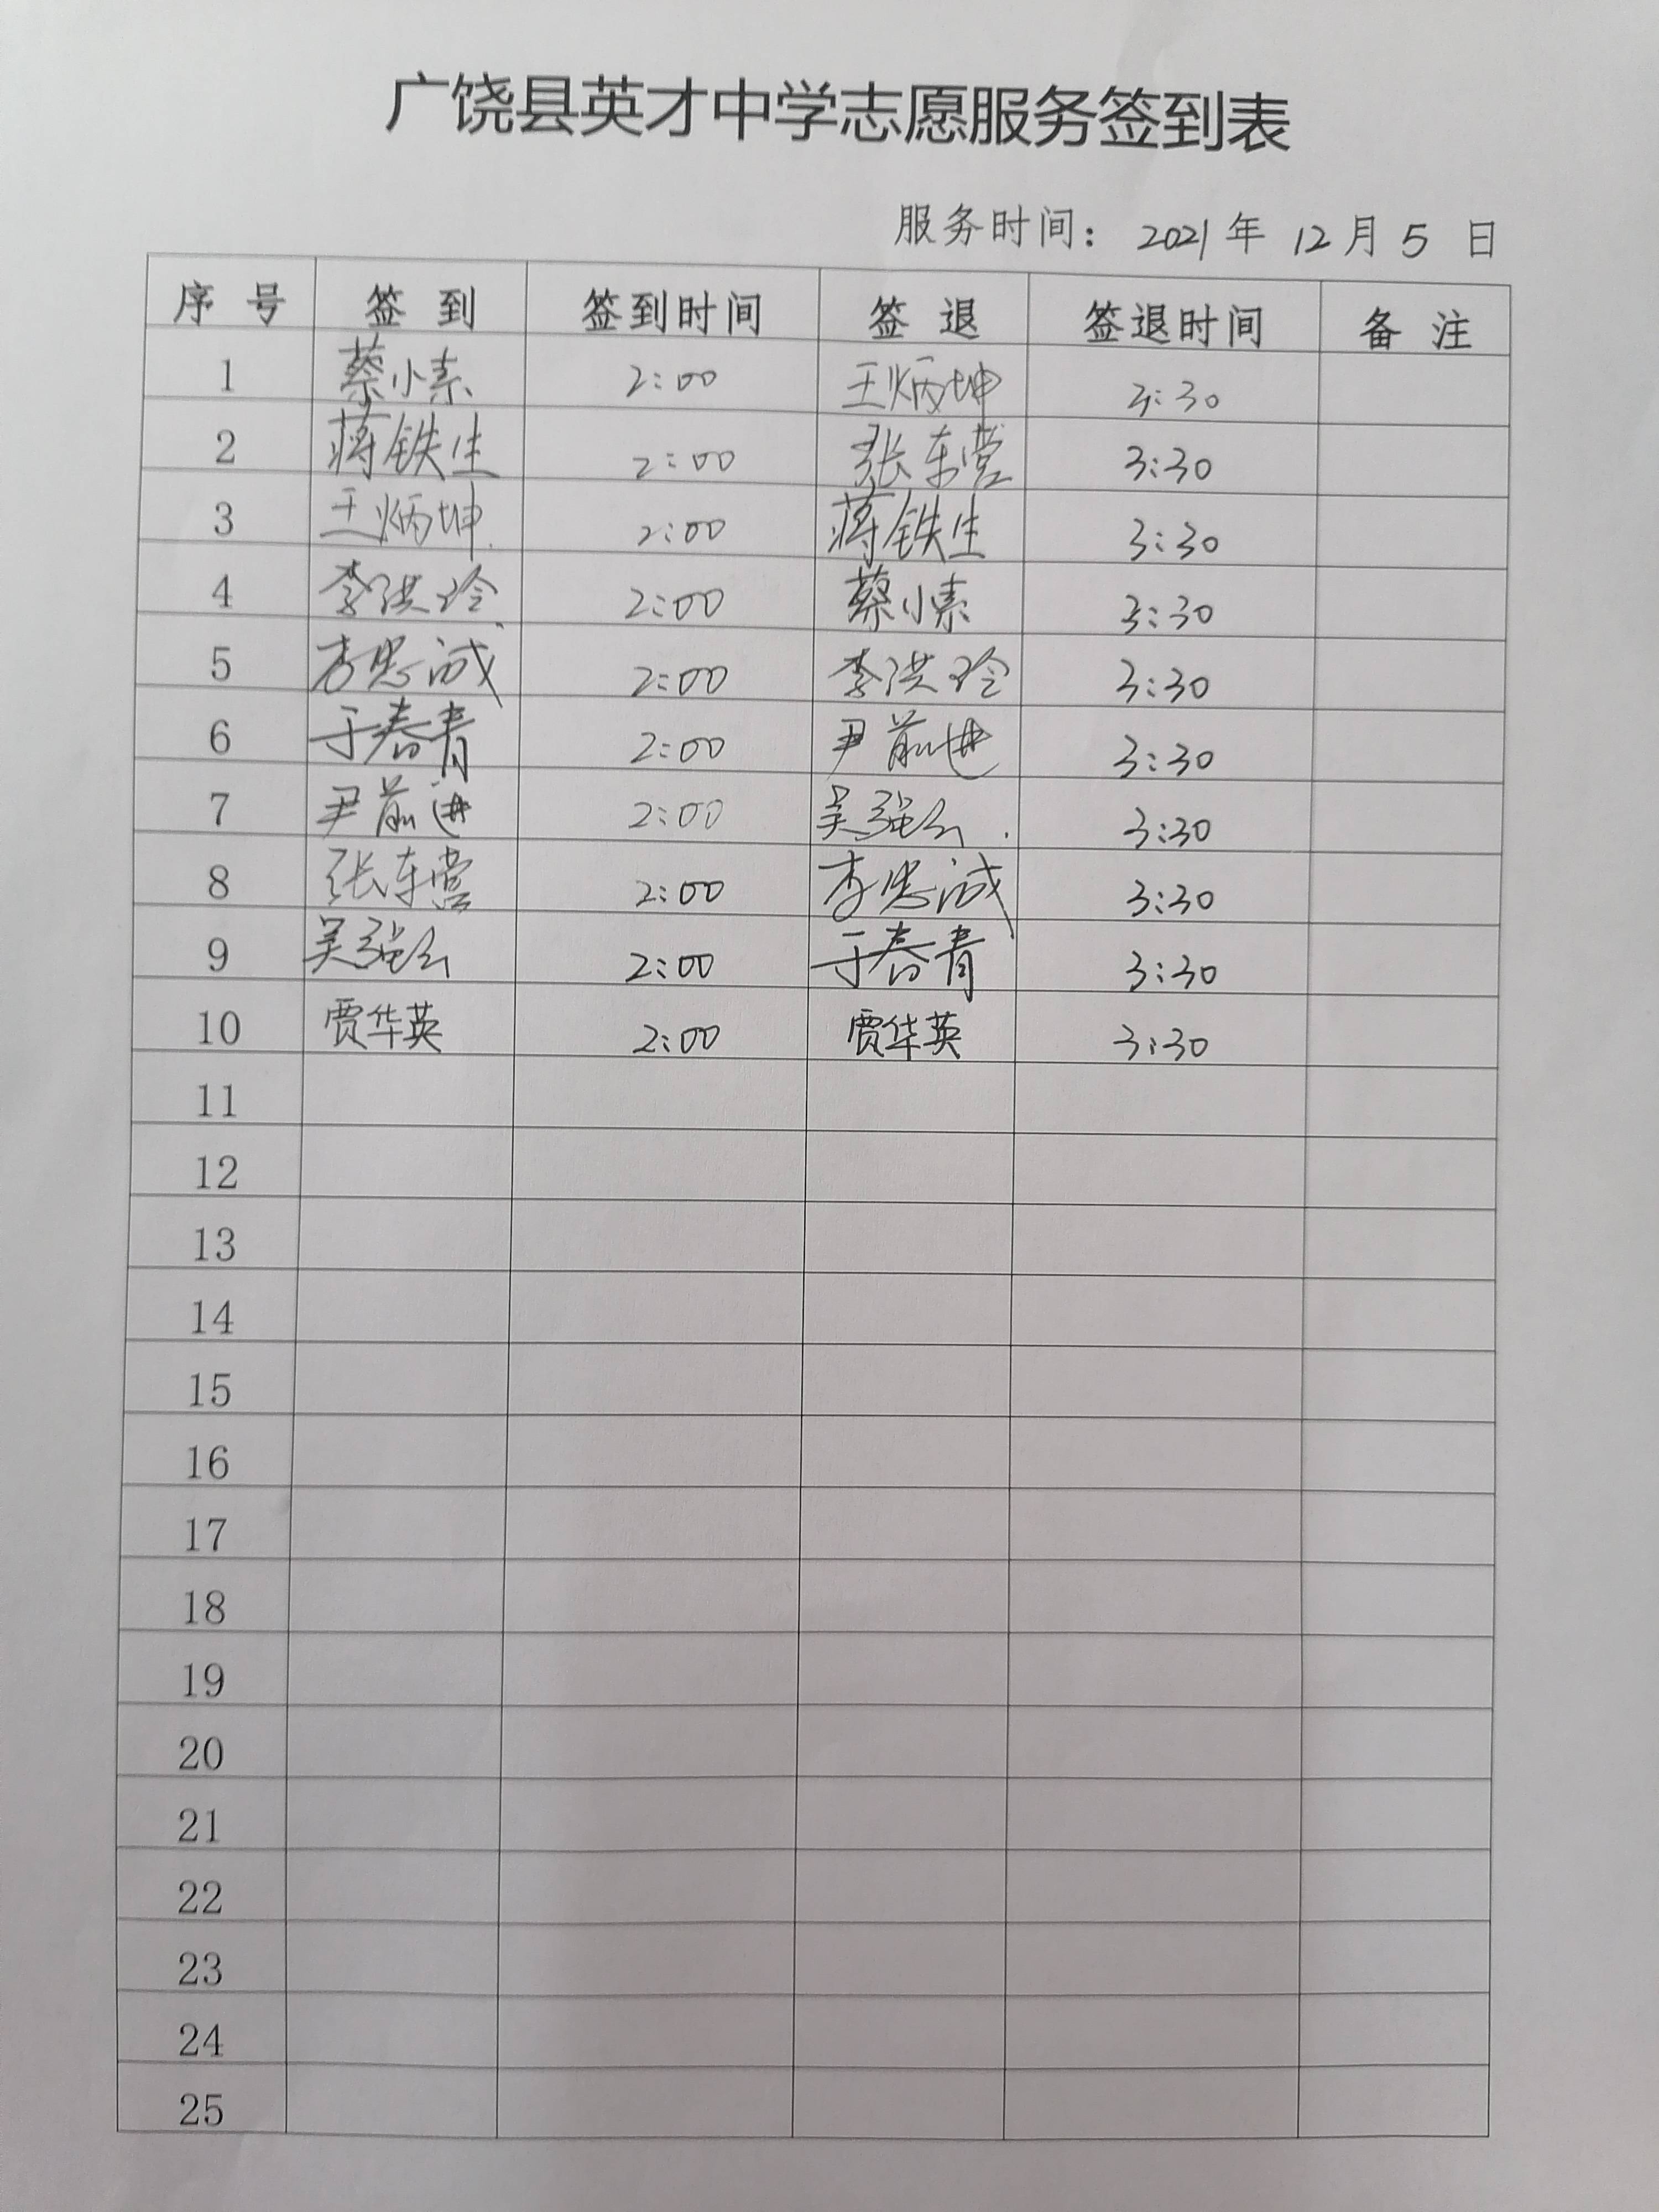 广饶县英才中学志愿服务签到表
服务时间: 2021 年 12 月 5 日
序号 签到 签到时间 签退 签退时间 备注
1 蔡小素 2:00 王炳坤 3:30
2 蒋铁生 2:00 张东营 3:30
3 王炳坤 2:00 蒋铁生 3:30
4 李洪玲 2:00 蔡小素 3:30
5 李思诚 2:00 李洪玲 3:30
6 于春青 2:00 尹前进 3:30
7 尹前进 2:00 吴强 3:30
8 张东营 2:00 李思诚 3:30
9 吴强 2:00 于春青 3:30
10 贾华英 2:00 贾华英 3:30
11
12
13
14
15
16
17
18
19
20
21
22
23
24
25